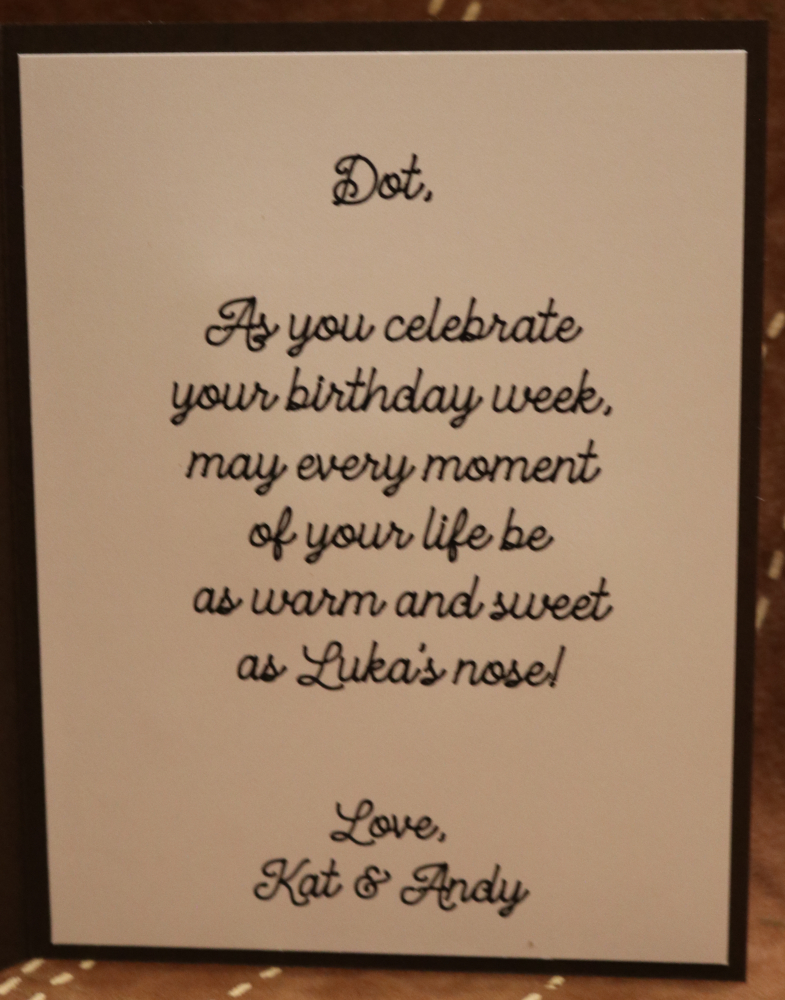 Dot,
As you celebrate
your birthday week,
may every moment
of your life be
as warm and sweet
as Luka's nose!
Love,
Kat & Andy